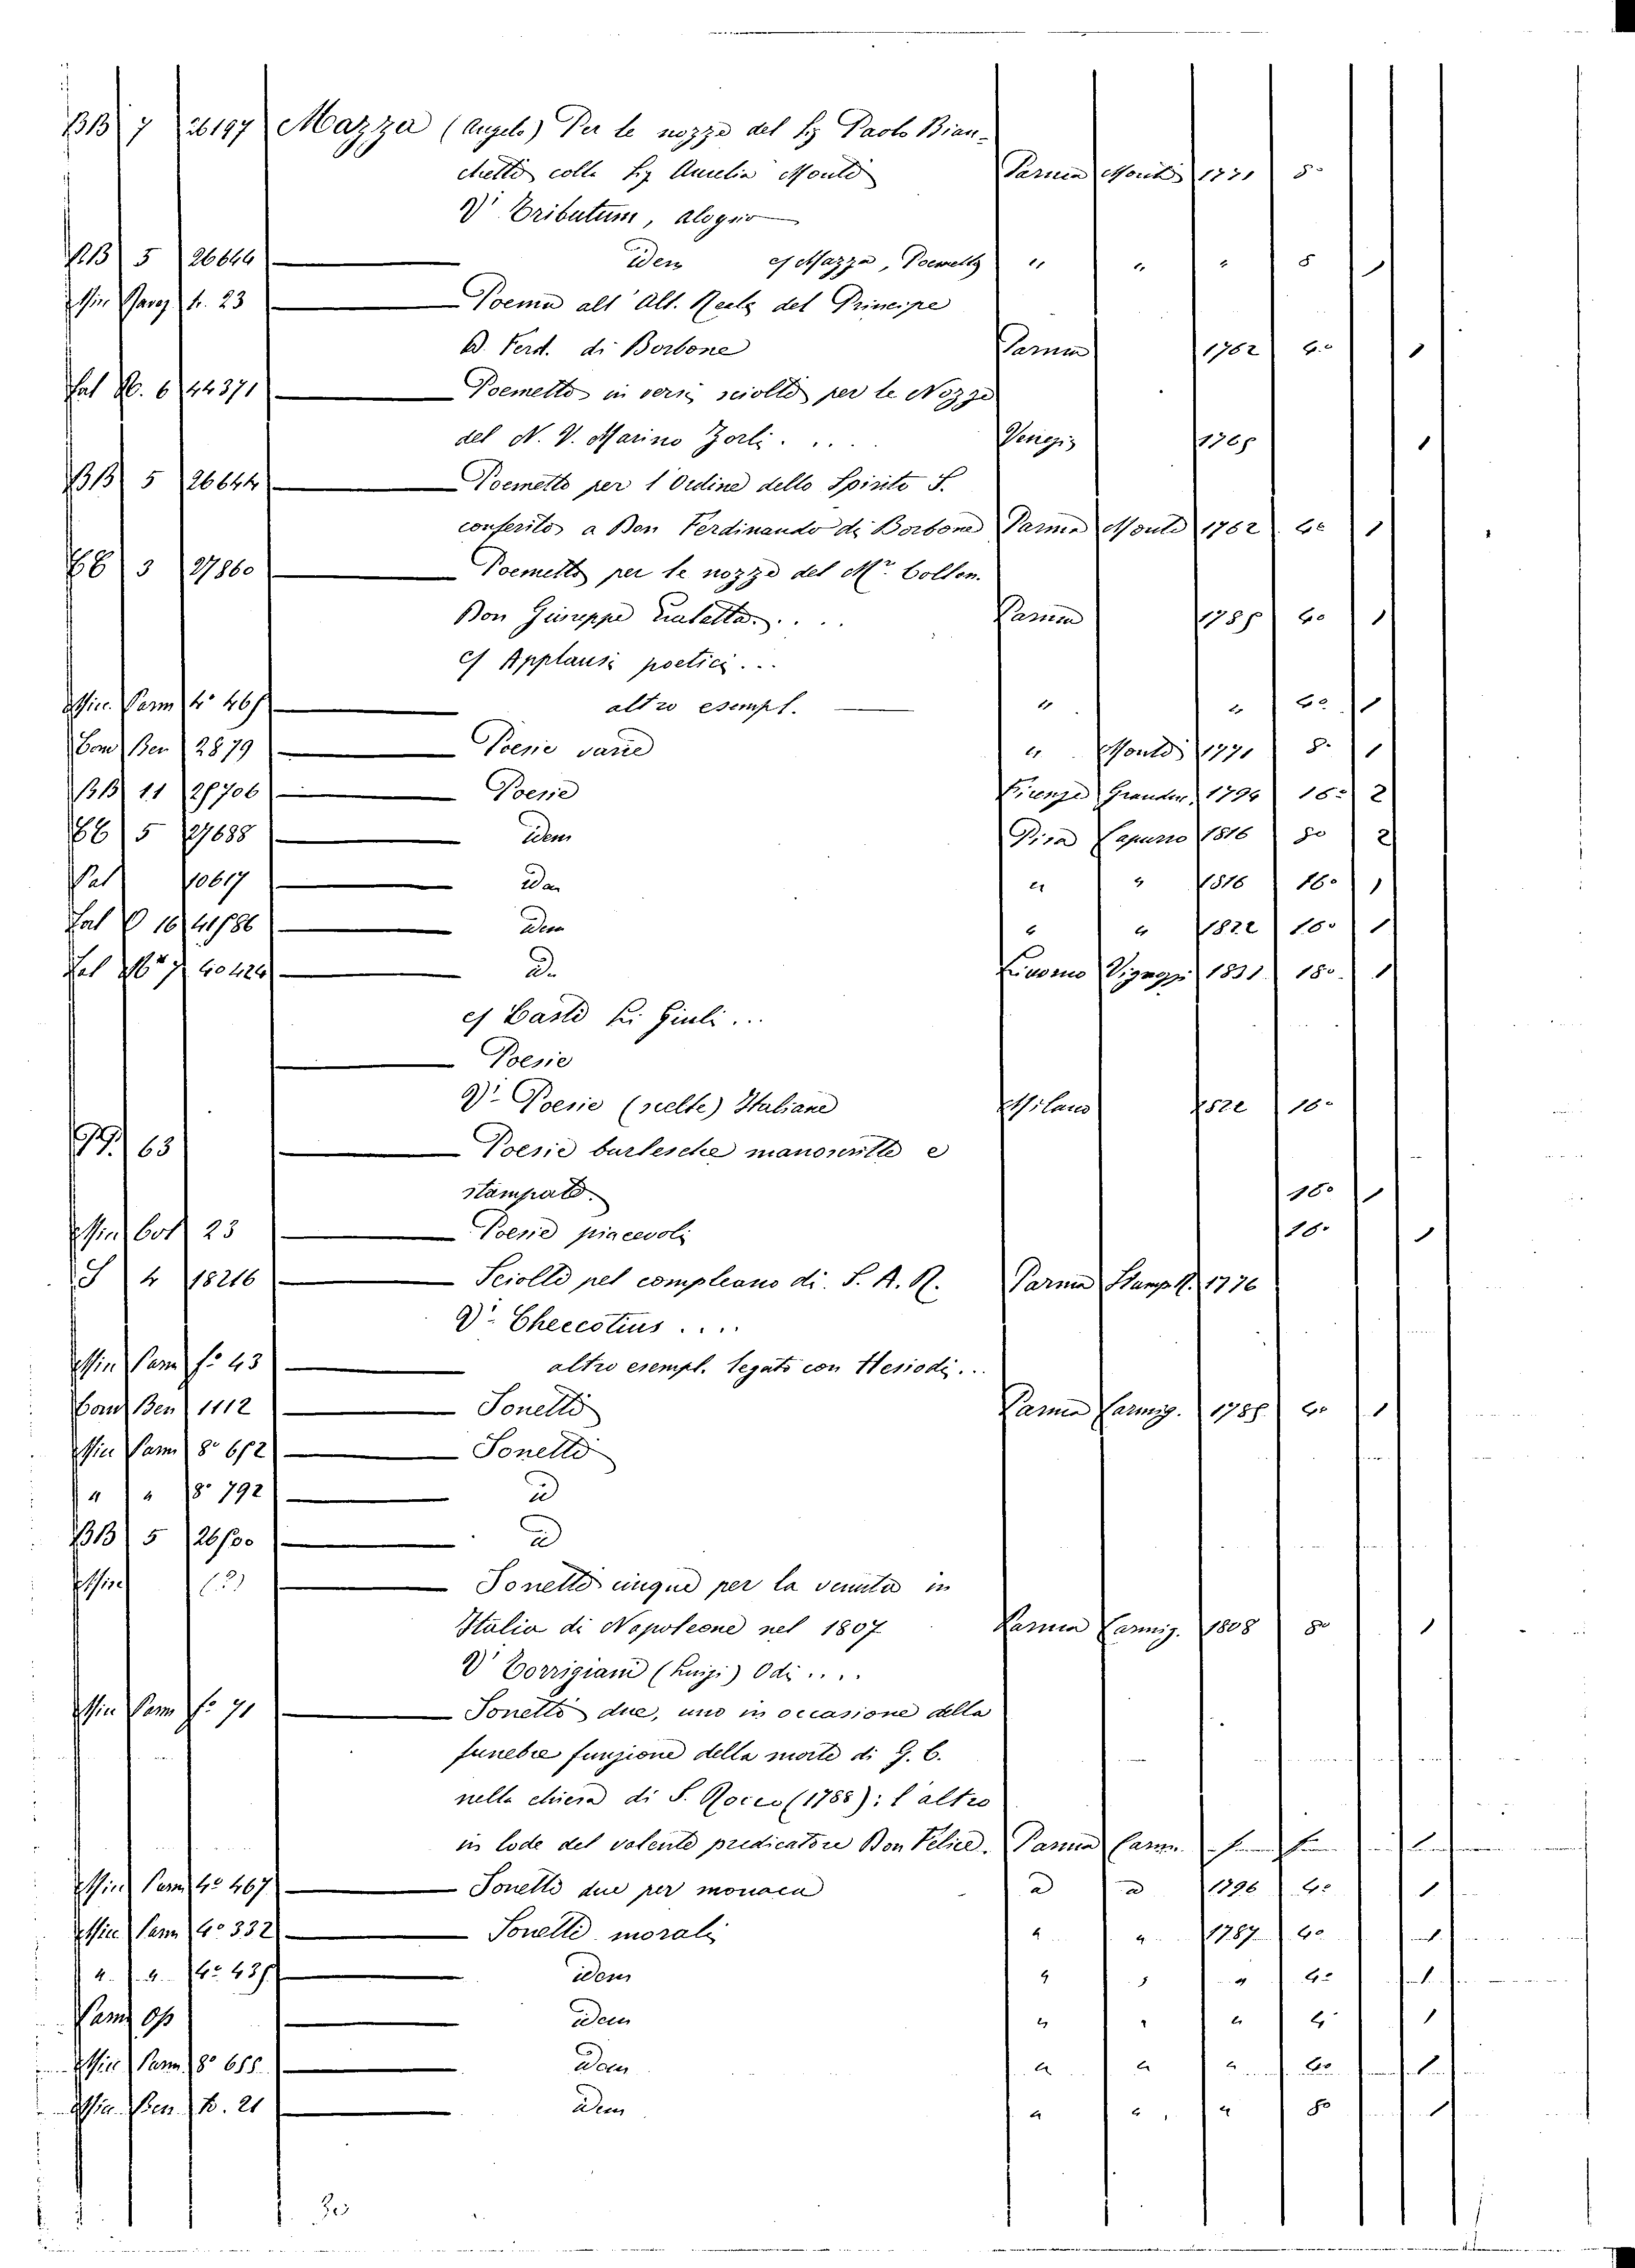 BB 7 26197 Mazza (Angelo) Per le nozze del Sig Paolo Bian-
chetti colla Sig Aurelia Monti Parma Monti 1771 8°
V. Tributum, alogio
BB 5 26644 idem cf Mazza, Poemetto " " " 8 1
Min Parg 4. 23 Poema all' Alt. Reale del Principe
D. Ferd. di Borbone Parma 1762 4° 1
Pal 6 44371 Poemetto in versi sciolti per le Nozze
del N. V. Marino Zorli. ... Venezia 1765 1
BB 5 26644 Poemetto per l'Ordine dello Spirito S.
conferito a Don Ferdinando di Borbone Parma Monti 1762 4° 1
3 27860 Poemetto per le nozze del Mr. Collon.
Don Giuseppe .... Parma 1785 4° 1
cf Applausi poetici...
Misc. Parm 4° altro esempl. " " 4° 1
Com Ben 2879 Poesie varie " Monti 1771 8° 1
BB 11 Poesie Firenze 1794 16° 2
5 27688 idem Pisa Capurro 1816 8° 2
Pal 10617 idem " " 1816 16° 1
Pal 16 41586 idem " " 1822 16° 1
Pal 7 40424 id. Livorno Vignozzi 1831 18° 1
cf Casti Li Giuli...
Poesie
V. Poesie (scelte) Italiane Milano 1822 16°
63 Poesie burlesche manoscritte e
stampate. 18° 1
Misc 23 Poesie piacevoli 16° 1
S 4 18216 Sciolti pel compleano di S. A. R. Parma Stamp. R. 1776
V. Checcotius ....
Misc Parm f° 43 altro esempl. legato con Hesiodi...
Com Ben 1112 Sonetti Parma Carmig. 1785 4° 1
Misc Parm 8° 652 Sonetti
" " 8° 792 id
BB 5 id
Misc (?) Sonetti cinque per la venuta in
Italia di Napoleone nel 1807 Parma Carmig. 1808 8° 1
V. Corrigiani (Luigi) Odi ....
Misc Parm f° 71 Sonetti due, uno in occasione della
funebre funzione della morte di G. C.
nella chiesa di S. Rocco (1788): l'altro
in lode del valente predicatore Don Felice. Parma Carm.
Misc Parm 4° 467 Sonetti due per monaca id id 1796 4° 1
Misc Parm 4° 332 Sonetti morali " " 1787 4° 1
" " 4° idem " " " 4° 1
Parm idem " " " 4° 1
Misc Parm 8° 655 idem " " " 4° 1
Misc. 8. 21 idem " " " 8° 1